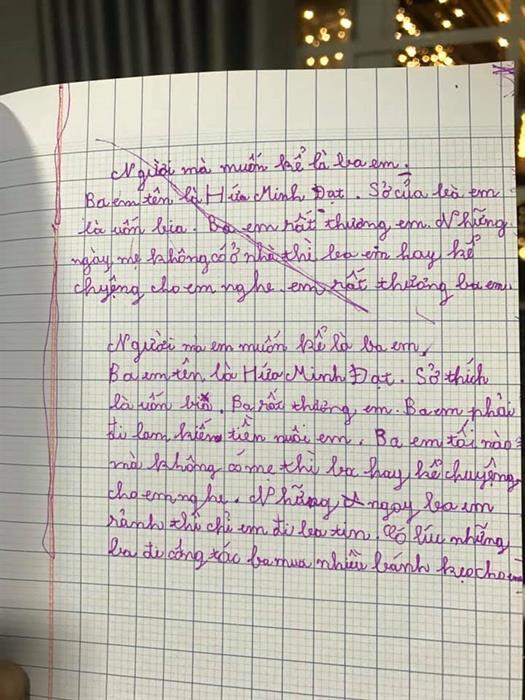 Người mà muốn kể là ba em.
Ba em tên là Hứa Minh Đạt. Sở của ba em
là uốn bia. Ba em rất thương em. Những
ngày mẹ không có ở nhà thì ba em hay kể
chuyện cho em nghe. em rất thương ba em.
Người ma em muốn kể là ba em.
Ba em tên là Hứa Minh Đạt. Sở thích
là uốn bia. Ba rất thương em. Ba em phải
đi lam kiếm tiền nuôi em. Ba em tối nào
mà không có mẹ thì ba hay kể chuyện
cho em nghe. Những ngay ba em
rảnh thì chỉ em đi ba tin. Có lúc những
ba đi công tác ba mua nhiều bánh kẹo cho em